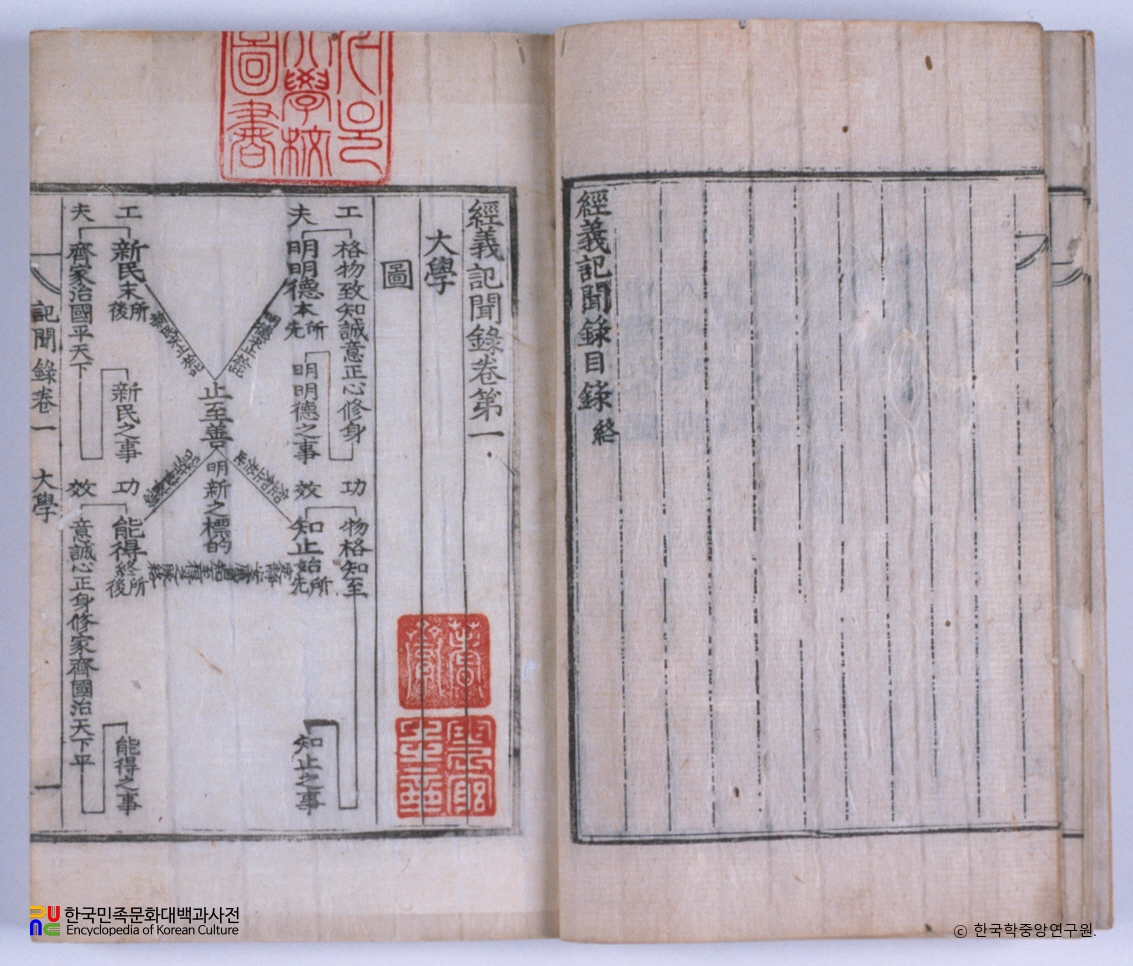 經義記聞錄目錄 終
經義記聞錄卷第一
大學
圖
工夫
格物致知誠意正心修身
明明德之事
明明德 本 所先
功效
物格知至
知止之事
知止 始 所先
止至善 明新之標的
工夫
新民 末 所後
新民之事
齊家治國平天下
功效
能得 終 所後
能得之事
意誠心正身修家齊國治天下平
記聞錄卷一 大學 一
學校
圖書
한국민족문화대백과사전
Encyclopedia of Korean Culture
© 한국학중앙연구원.